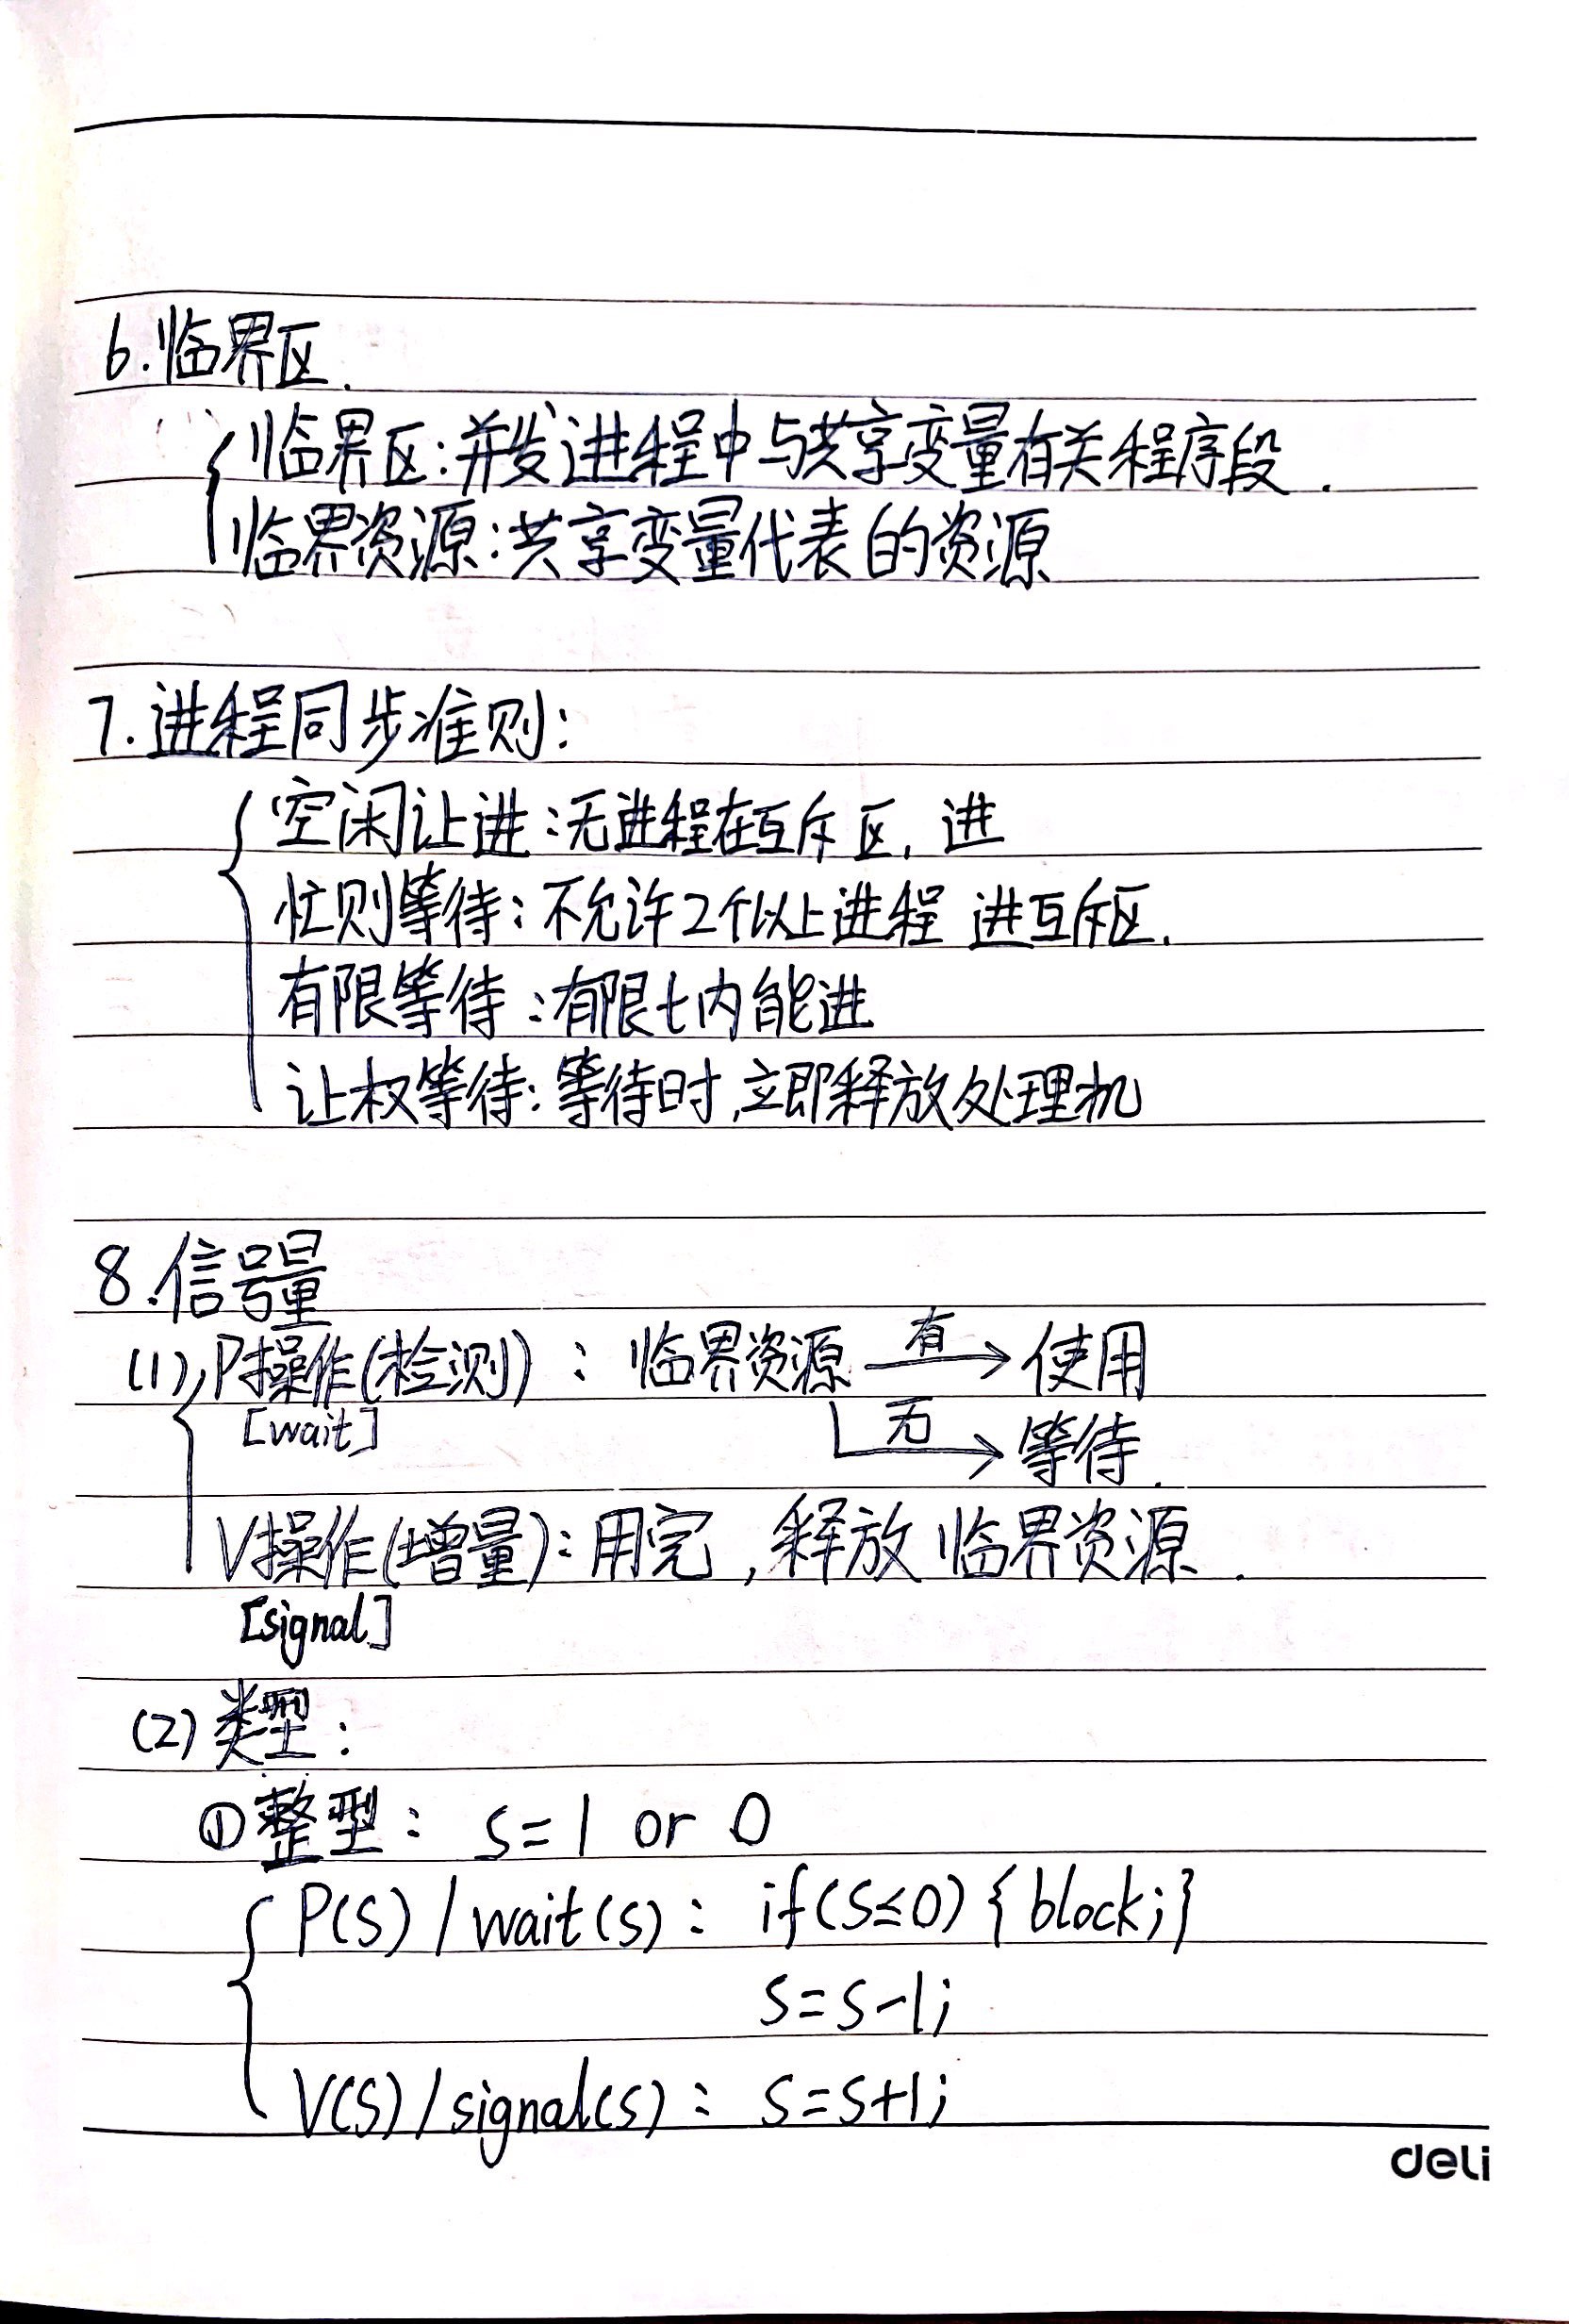 6.临界区.
临界区:并发进程中与共享变量有关程序段.
临界资源:共享变量代表的资源
7.进程同步准则:
空闲让进:无进程在互斥区,进
忙则等待:不允许2个以上进程 进互斥区.
有限等待:有限t内能进
让权等待:等待时,立即释放处理机
8.信号量
(1),P操作(检测): 临界资源 有→ 使用
[wait] 无→ 等待.
V操作(增量):用完,释放 临界资源.
[signal]
(2)类型:
①整型: s=1 or 0
P(S)/wait(s): if(S≤0){block;}
S=S-1;
V(S)/signal(s): S=S+1;
deli